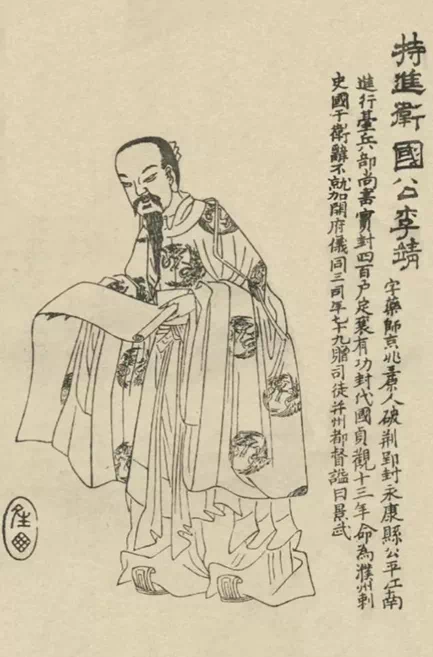 特進衛國公李靖 字藥師京兆三原人破荆封永康縣公平江南
進行臺兵部尚書實封四百户定襄有功封代國貞觀十三年命為濮州刺
史國于衛辭不就加開府儀同三司年七十九贈司徒并州都督謚曰景武